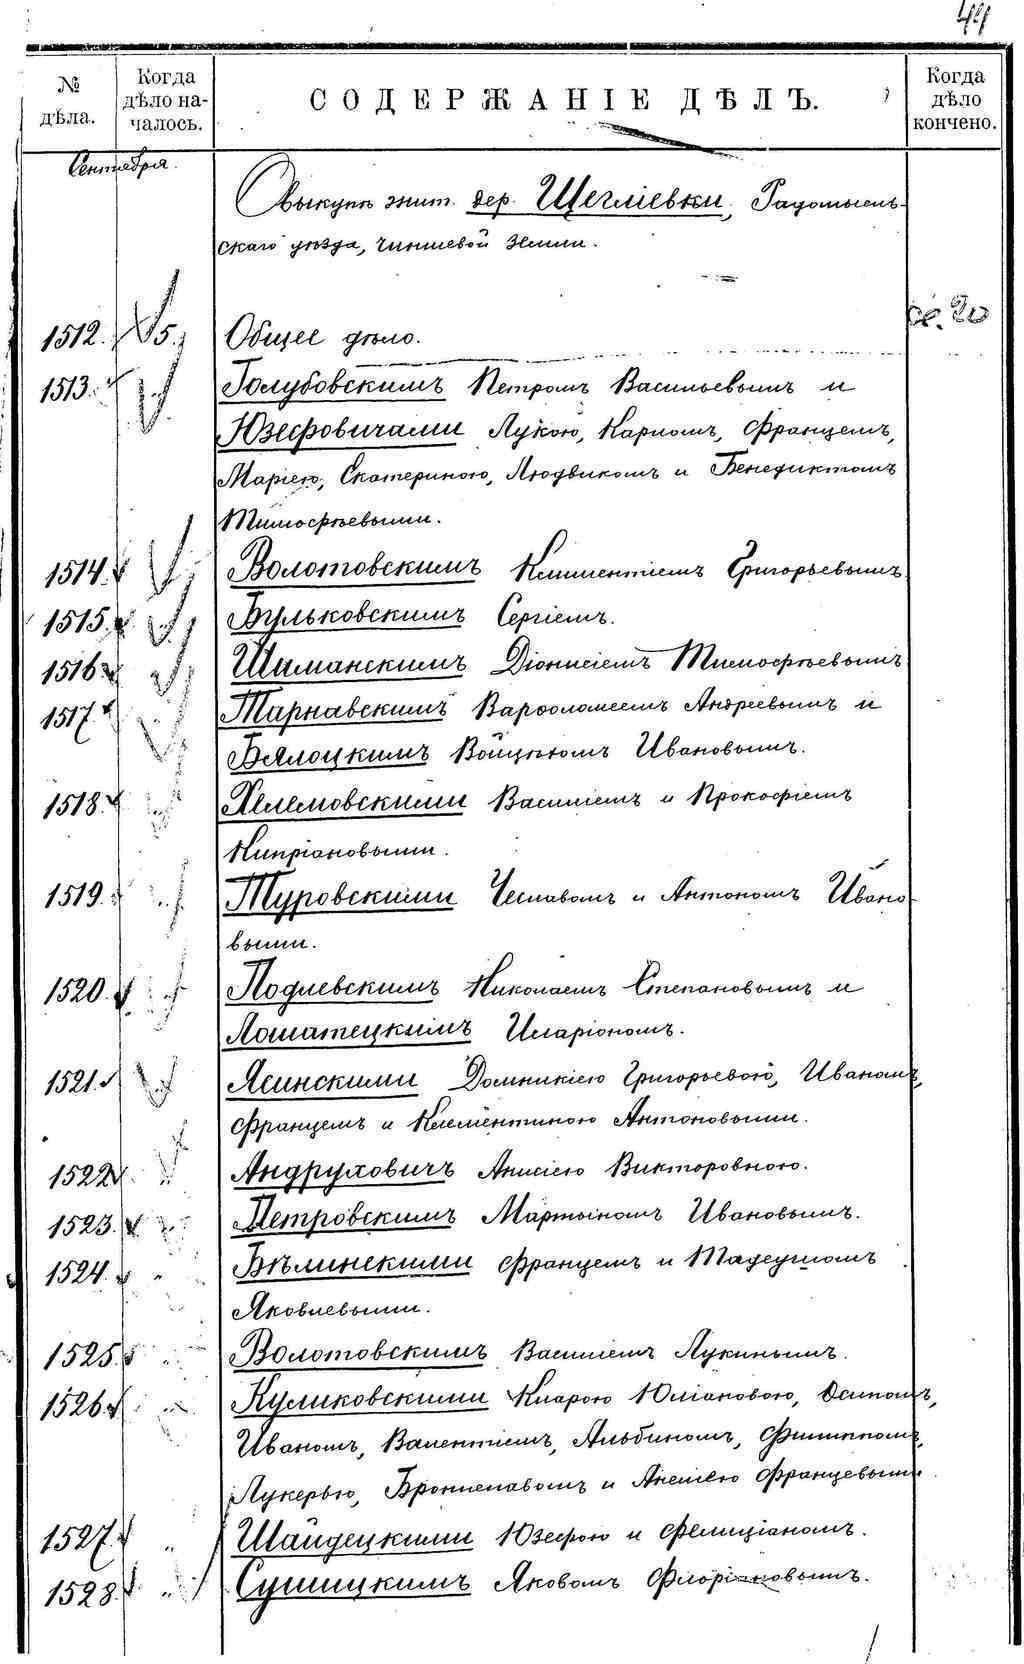 44
№ дѣла.
Когда дѣло началось.
СОДЕРЖАНІЕ ДѢЛЪ.
Когда дѣло кончено.
Сентября.
О выкупѣ жит. дер. Щегліевки, Радомысль-
скаго уѣзда, чиншевой земли.
1512. 5. Общее дѣло.
1513. Голубовскимъ Петромъ Васильевымъ и
Юзефовичами Лукою, Карпомъ, Францемъ,
Маріею, Екатериною, Людвикомъ и Бенедиктомъ
Тимофѣевыми.
1514. Волотовскимъ Климентіемъ Григорьевымъ
1515. Бульковскимъ Сергіемъ.
1516 Шиманскимъ Діонисіемъ Тимофѣевымъ
1517 Тарнавскимъ Варфоломеемъ Андреевымъ и
Бялоцкимъ Войцѣхомъ Ивановымъ.
1518. Хелемовскими Василіемъ и Прокофіемъ
Кипріановыми.
1519. Туровскими Чеславомъ и Антономъ Ивано-
выми.
1520. Подлевскимъ Николаемъ Степановымъ и
Лошатецкимъ Иларіономъ.
1521. Ясинскими Домникіею Григорьевою, Иваномъ,
Францемъ и Клементиною Антоновыми.
1522 Андруховичъ Анисіею Викторовною.
1523. Петровскимъ Мартыномъ Ивановымъ.
1524. " Бѣлинскими Францемъ и Тадеушомъ
Яковлевыми.
1525. " Волотовскимъ Василіемъ Лукинымъ.
1526. " Куликовскими Кларою Юліановою, Осипомъ,
Иваномъ, Валентіемъ, Альбиномъ, Филиппомъ,
Лукерью, Брониславомъ и Анелею Францевыми
1527. " Шайдецкими Юзефою и Фелиціаномъ.
1528. " Сушицкимъ Яковомъ Флоріановымъ.